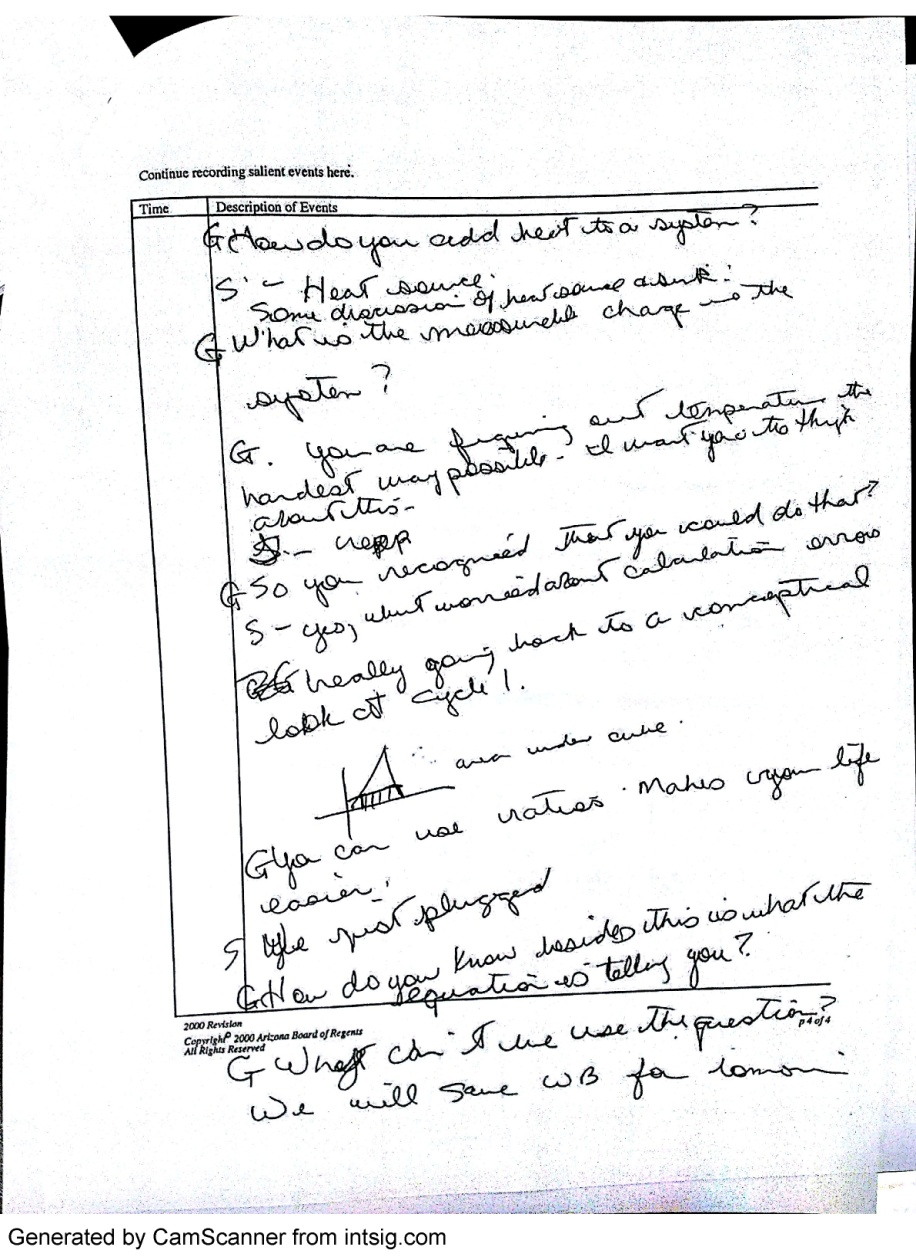 Continue recording salient events here.
Time Description of Events
G How do you add heat to a system?
S - Heat source.
Some discussion of heat source & sink.
G What is the measurable change in the
system?
G. you are figuring out temperature the
hardest way possible - I want you to think
about this -
S -
G So you recognized that you could do that?
S - yes, but worried about calculation error
really going back to a conceptual
look at cycle 1.
area under curve.
G You can use ratios. Makes your life
easier.
S We just plugged
G How do you know besides this is what the
equation is telling you?
2000 Revision
Copyright© 2000 Arizona Board of Regents
All Rights Reserved
p4 of 4
G What can't we use the question?
We will save WB for
Generated by CamScanner from intsig.com